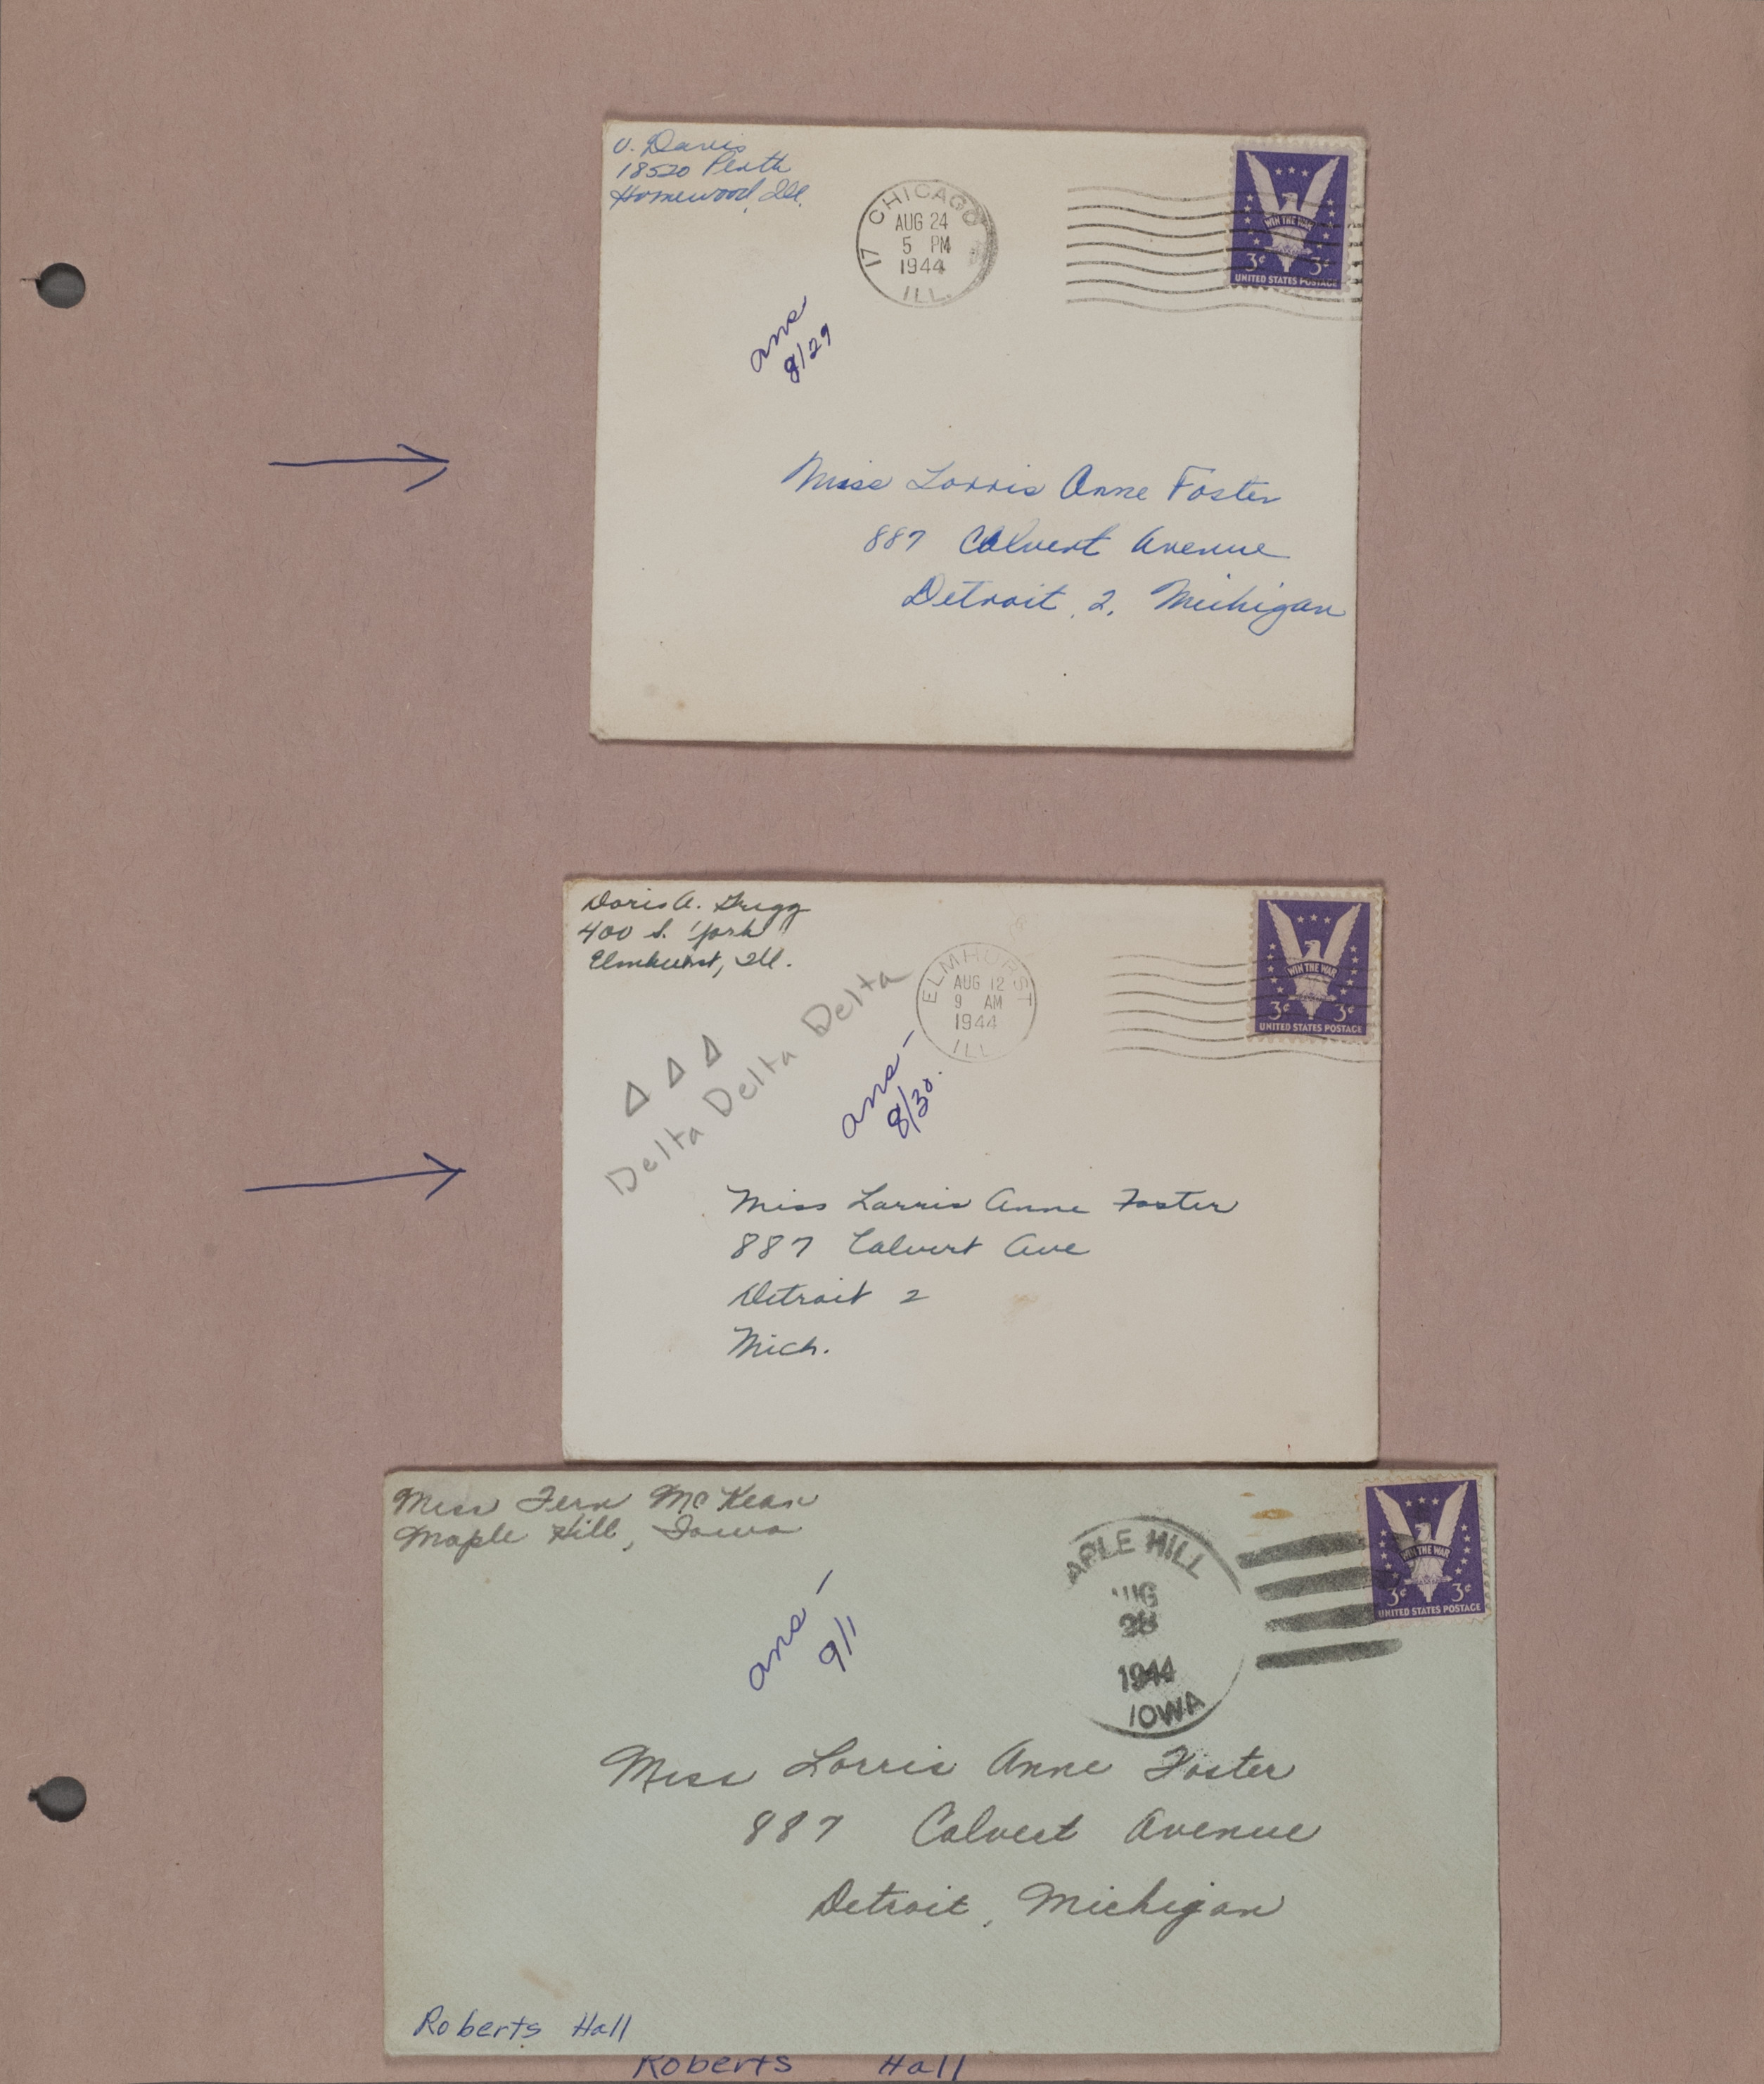 V. Davis
18520 Perth
Homewood, Ill.
17 CHICAGO
AUG 24
5 PM
1944
ILL.
WIN THE WAR
3¢ 3¢
UNITED STATES POSTAGE
ans
8/29
Miss Lorris Anne Foster
887 Calvert Avenue
Detroit, 2, Michigan
Doris A. Grigg
400 S. York
Elmhurst, Ill.
ELMHURST
AUG 12
9 AM
1944
ILL
WIN THE WAR
3¢ 3¢
UNITED STATES POSTAGE
Δ Δ Δ
Delta Delta Delta
ans-
8/30.
Miss Lorris Anne Foster
887 Calvert Ave
Detroit 2
Mich.
Miss Fern McKean
Maple Hill, Iowa
APLE HILL
AUG
28
1944
IOWA
WIN THE WAR
3¢ 3¢
UNITED STATES POSTAGE
ans-
9/1
Miss Lorris Anne Foster
887 Calvert Avenue
Detroit, Michigan
Roberts Hall
Roberts Hall